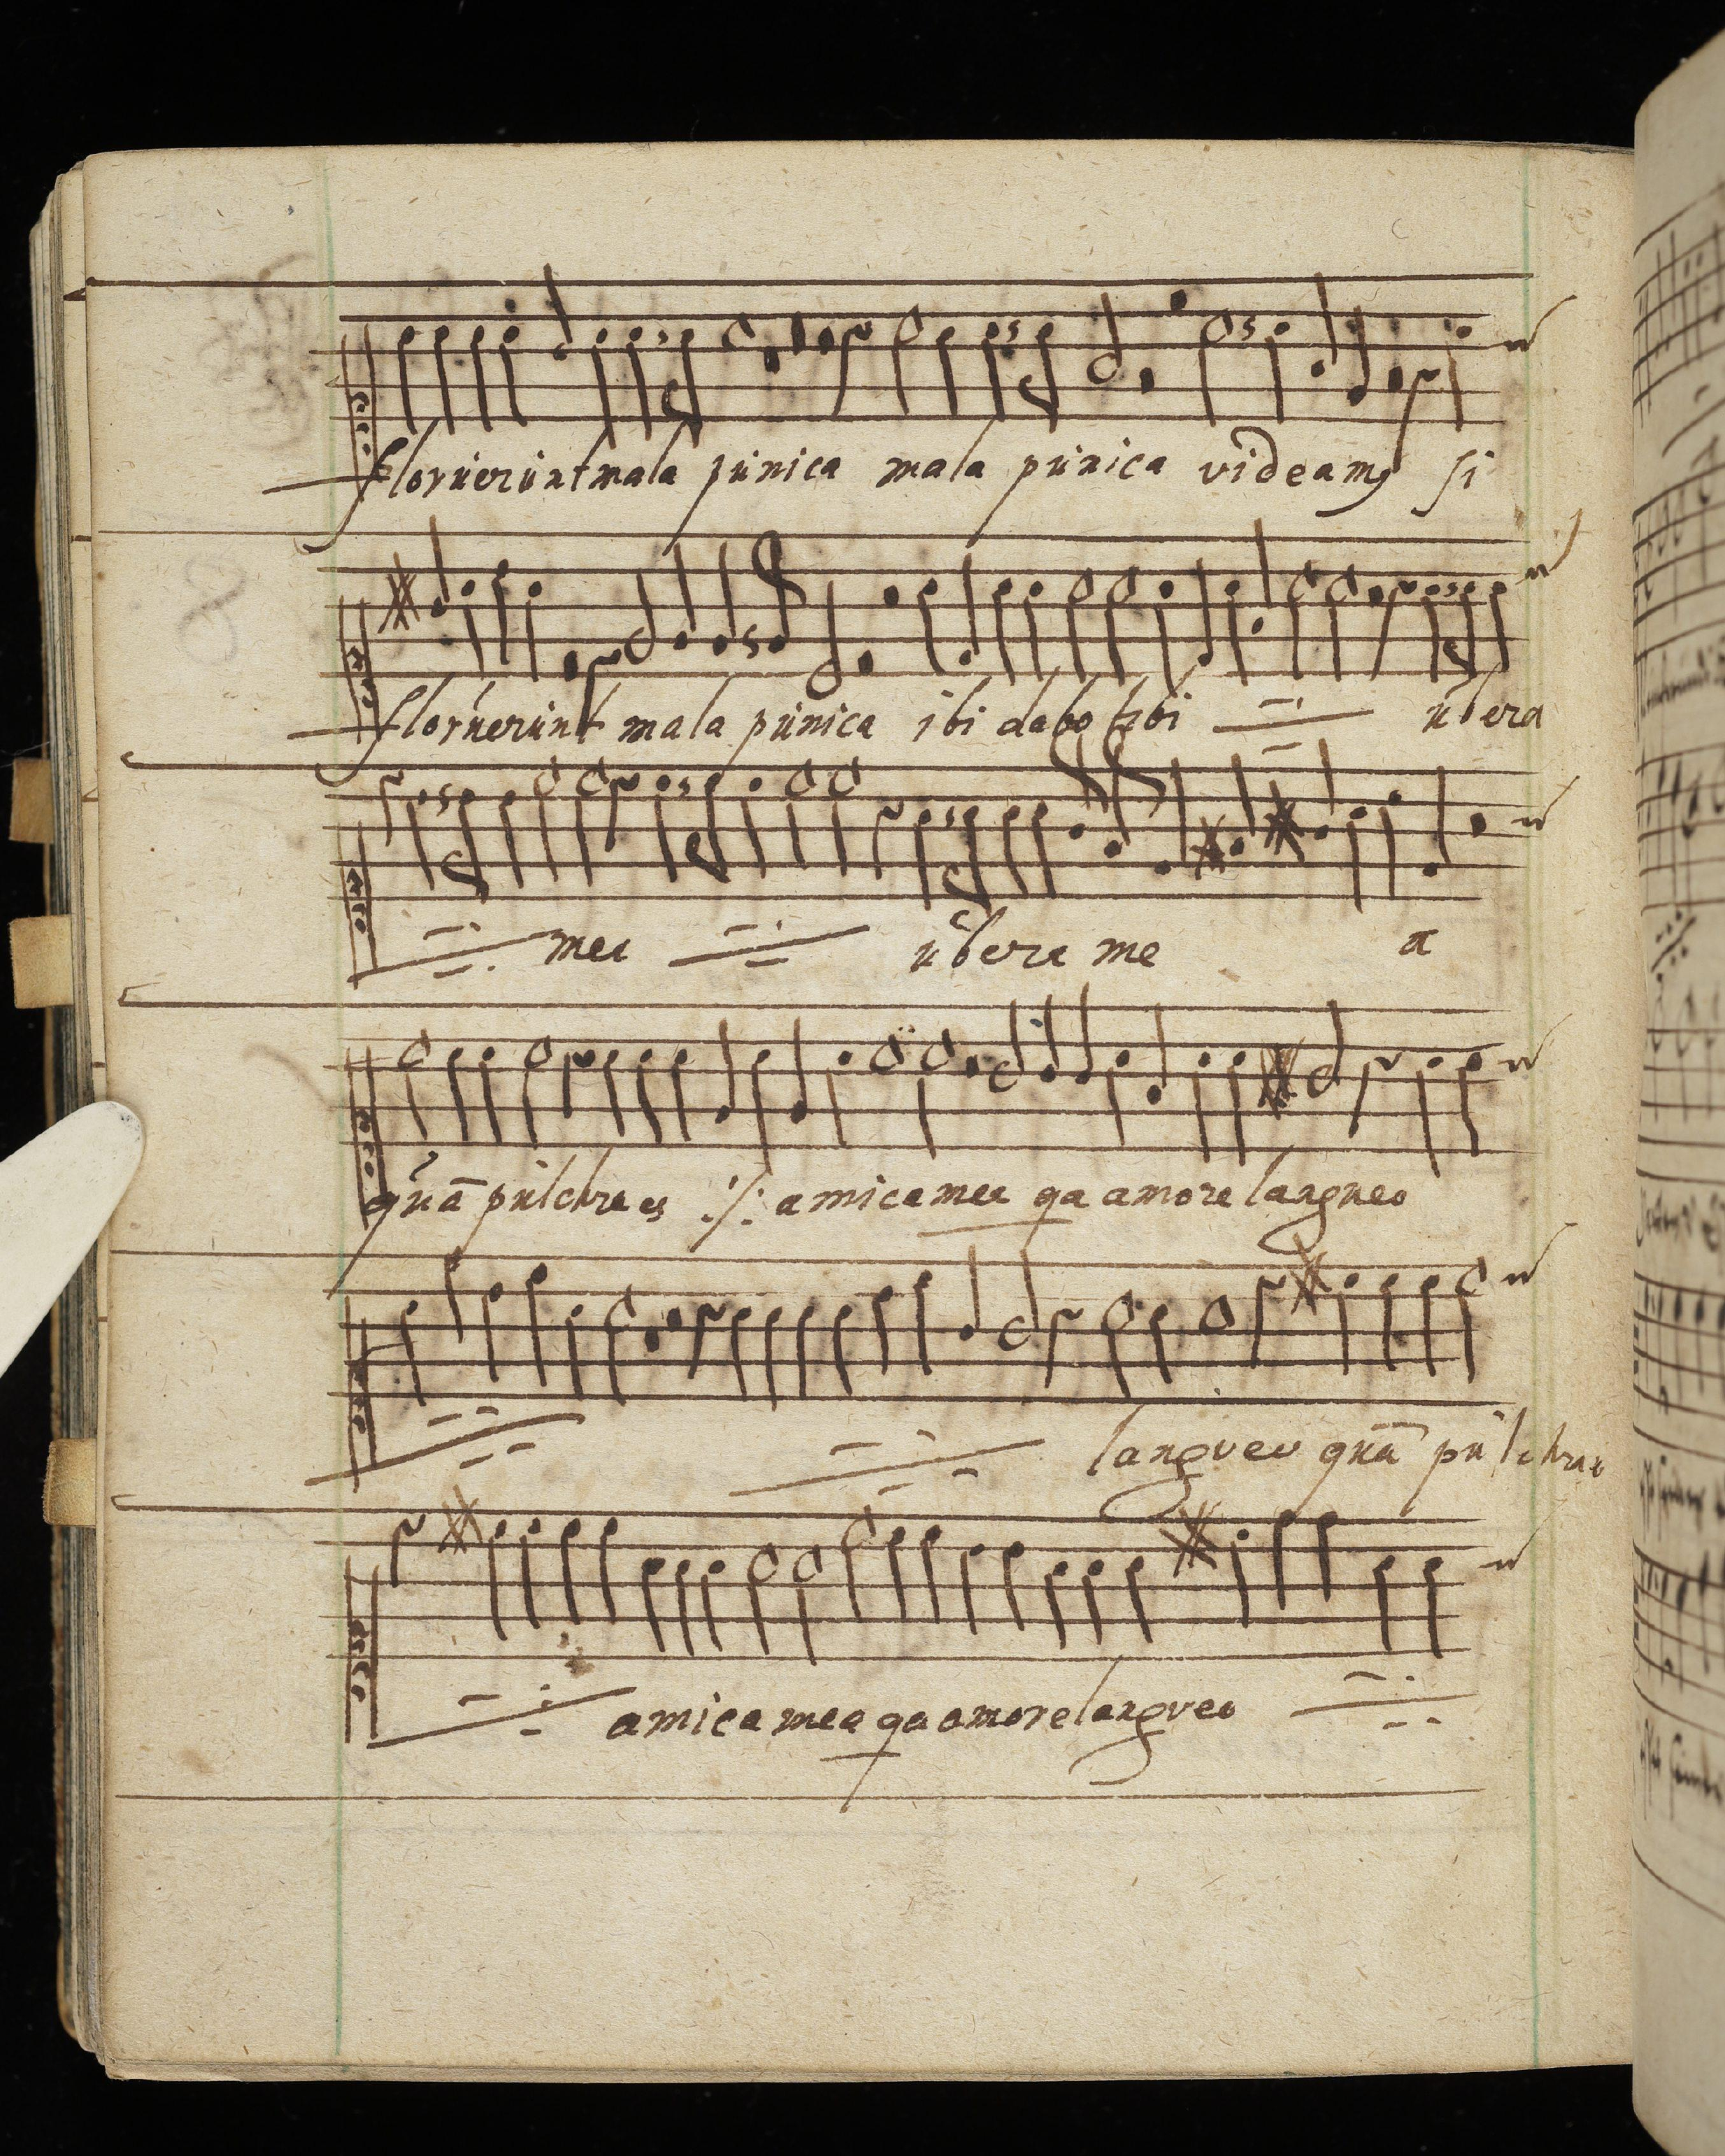 floruerunt mala punica mala punica videamꝰ si
floruerunt mala punica ibi dabo tibi ubera
mea ubera me a
quā pulchra es ·/· amica mea qa amore langueo
langveo quā pulchra e
amica mea qa amore langveo